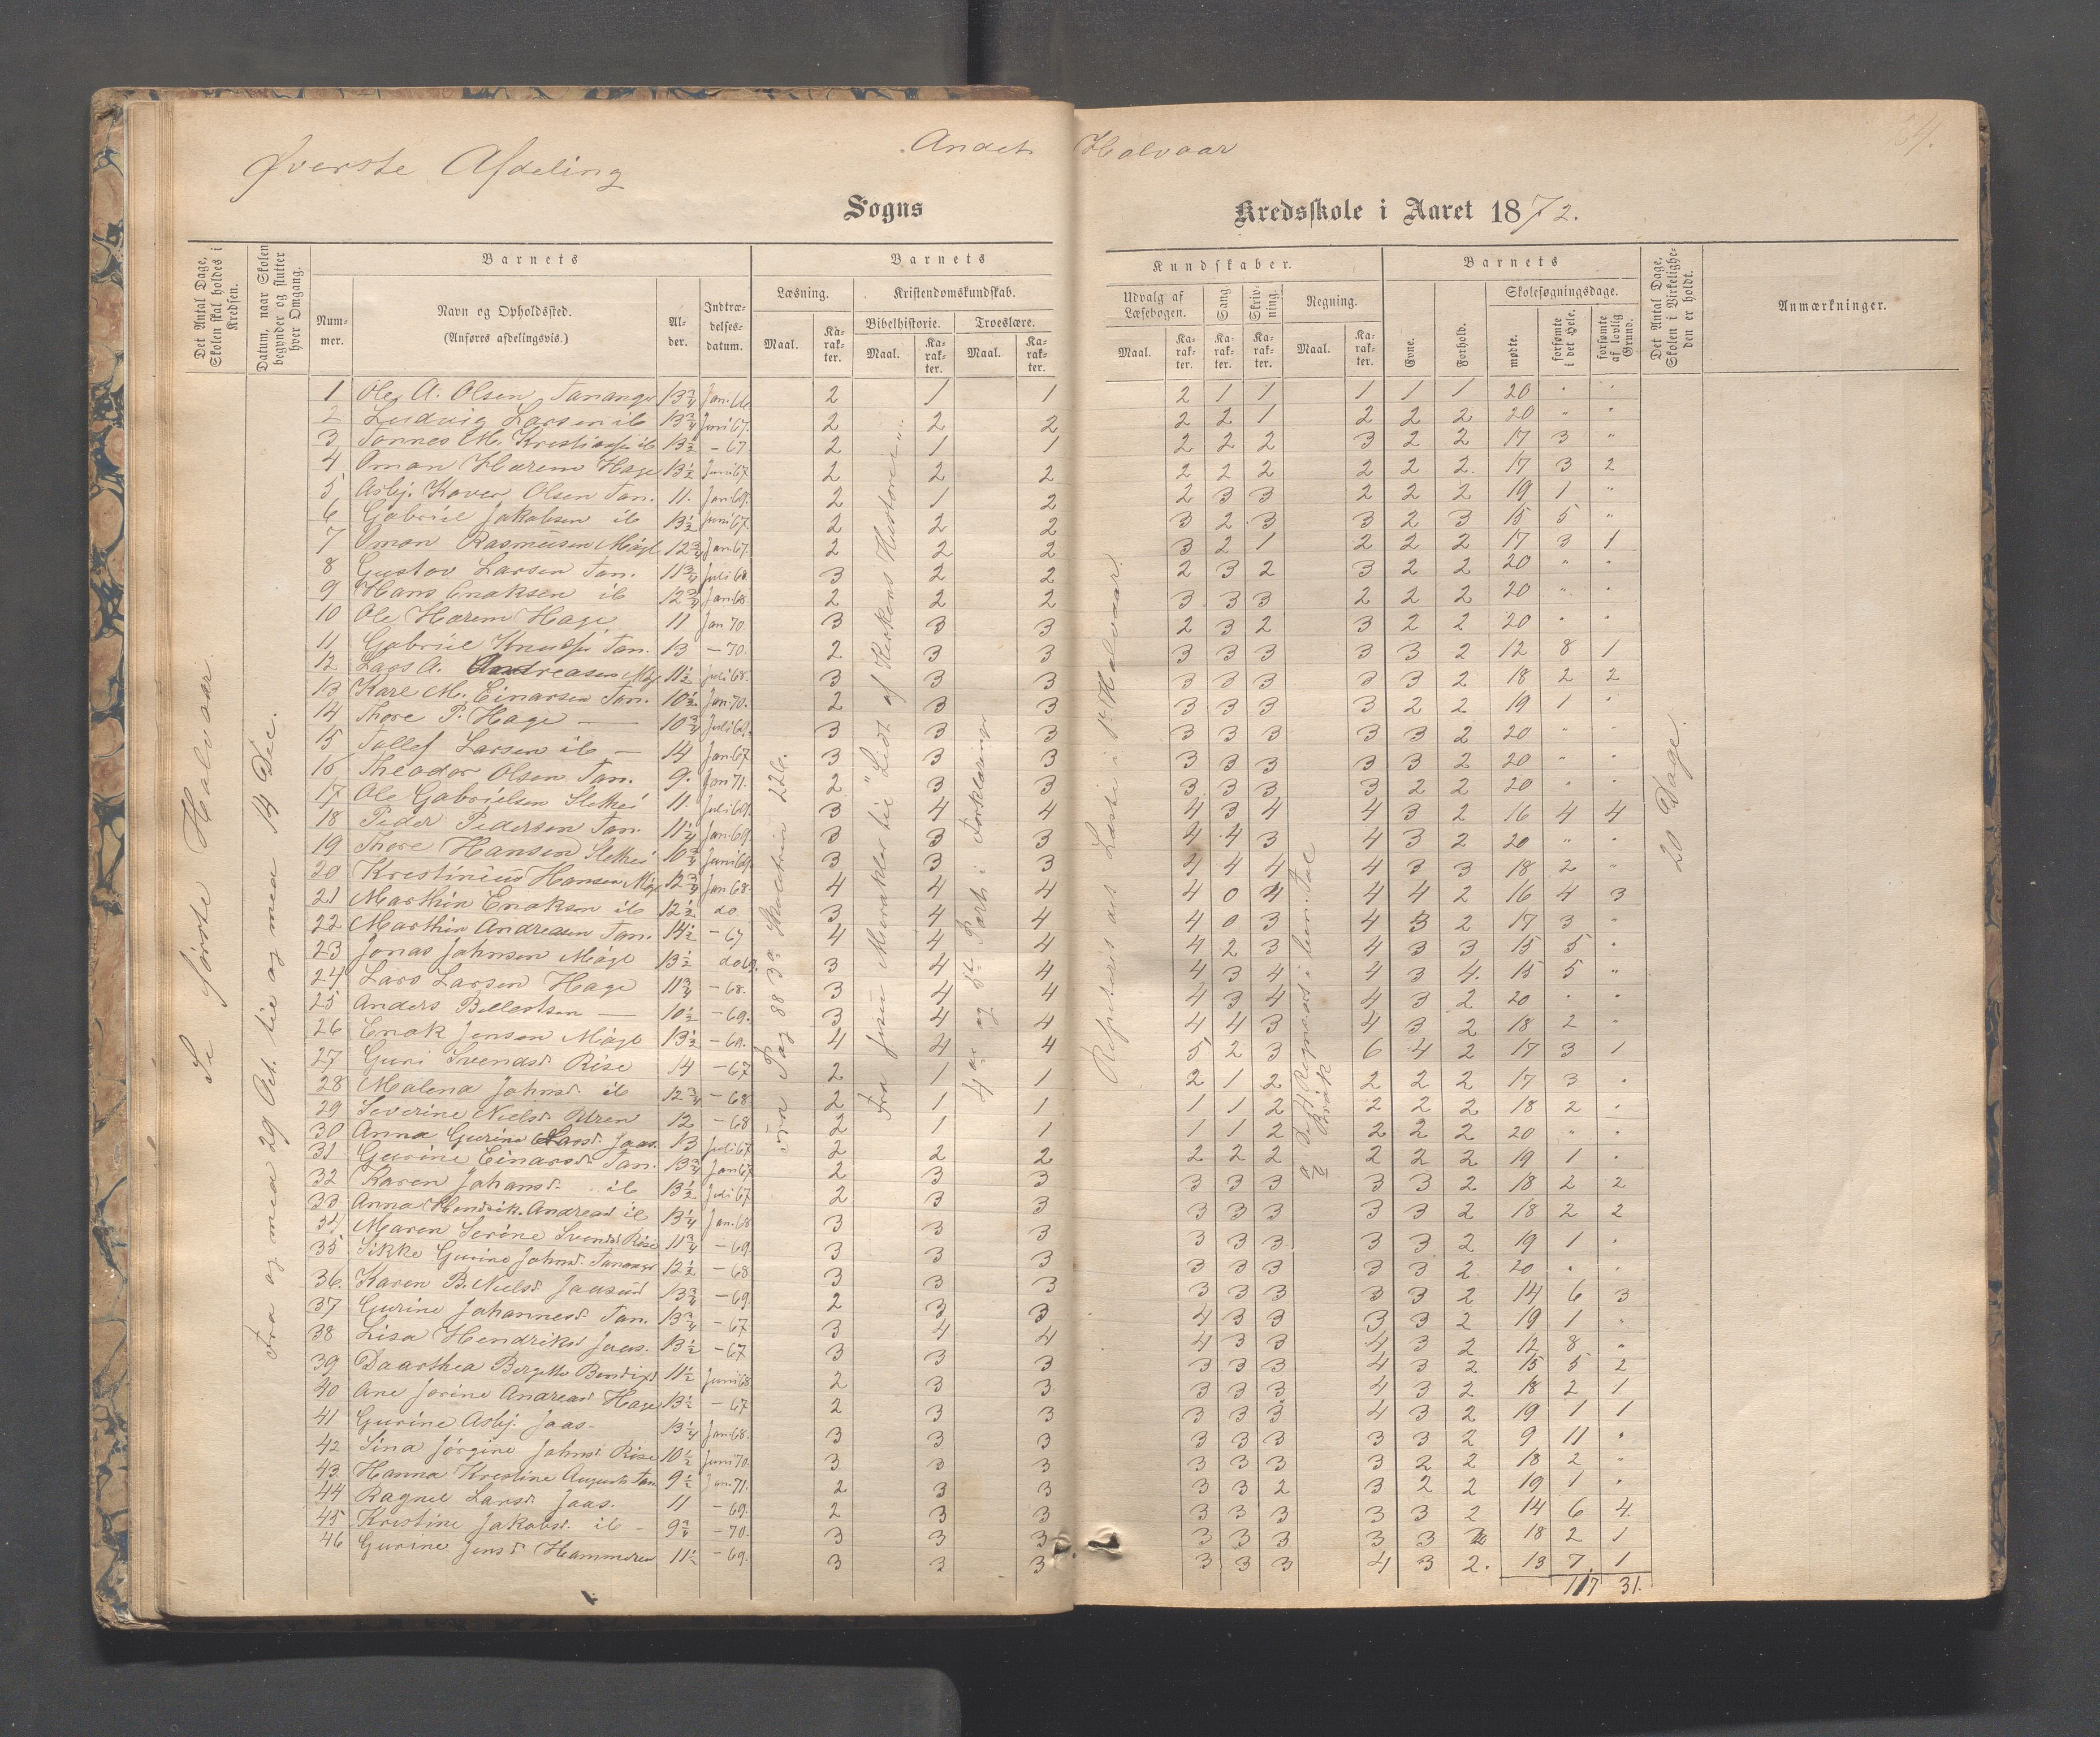 Andet Halvaar
Øverste Afdeling
Sogns Kredsskole i Aaret 1872.
Det Antal Dage, Skolen skal holdes i Kredsen.
Datum, naar Skolen begynder og slutter hver Omgang.
Barnets
Nummer.
Navn og Opholdssted. (Anføres afdelingsvis.)
Alder.
Indtrædelsesdatum.
Barnets Kundskaber.
Læsning.
Maal. Karakter.
Kristendomskundskab.
Bibelhistorie.
Maal. Karakter.
Troeslære.
Maal. Karakter.
Udvalg af Læsebogen.
Maal. Karakter.
Sang. Karakter.
Skrivning. Karakter.
Regning.
Maal. Karakter.
Barnets
Evne.
Forhold.
Skolesøgningsdage.
mødte.
forsømte i det Hele.
forsømte af lovlig Grund.
Det Antal Dage, Skolen i Virkeligheden er holdt.
Anmærkninger.
Se første Halvaar.
Fra og med 29 Oct. til og med 14 Dec.
Fra Pag 88 3die
Fra Jesu Mirakler til "Lidt af Kirkens Historie".
4de og 5te Part i Forklaringen
Repeteris det Læste i 1ste Halvaar.
20 Dage.
1 Ole A. Olsen Tananger 13 3/4 Jan. 66 2 1 1 2 1 1 1 1 1 20 " "
2 Ludvig Larsen ib 13 3/4 Juni 67. 2 2 2 2 2 1 2 2 2 20 " "
3 Tønnes M. ib 13 1/2 - 67 2 1 1 2 2 2 3 2 2 17 3 "
4 Oman Harem Hage 13 1/2 Juni 67 2 2 2 2 2 2 2 2 2. 17 3 2
5 Asbj. Kaver Olsen Tan. 11. Jan. 69. 2 1 2 2 3 3 2 2 2 19 1 "
6 Gabriel Jakobsen ib 13 1/2 Juni 67. 2 2 2 3 2 3 3 2 3 15 5 "
7 Oman Rasmusen Mågl 12 3/4 Jan. 67. 2 2 2 3 2 1 2 2 2 17 3 1
8 Gustav Larsen Tan. 11 3/4 Juli 68 3 2 2 2 3 2 3 2 2 20 " "
9 Hans Enoksen ib 12 3/4 Jan 68 2 2 2 3 3 3 2 2 2 20 " "
10 Ole Harem Hage 11 Jan 70. 3 3 3 2 3 2 3 2 2 20 " "
11 Gabriel Tan. 13 - 70. 2 3 3 3 3 3 3 3 2 12 8 1
12 Lars A. Andreasen Mågl 11 1/2 Juli 68. 3 3 3 3 3 3 3 3 2 18 2 2
13 Karl M. Einarsen Tan. 10 1/2 Jan. 70. 2 3 3 3 3 3 3 2 2 19 1 "
14 Thore P. Hage — 10 3/4 Juli 69. 3 3 3 3 3 3 3 3 2 20 " "
15 Tollef Larsen ib — 14 Jan. 67 3 3 3 3 3 3 3 3 2 20 " "
16 Theodor Olsen Tan. 9. Jan 71. 2 3 3 3 3 3 3 2 2 20 " "
17 Ole Gabrielsen 11. Juli 69. 3 4 4 4 3 4 4 3 2 16 4 4
18 Peder Pedersen Tan. 11 1/4 Jan. 69 3 3 3 4 4 3 4 3 2 20 " "
19 Thore Hansen 10 3/4 Juni 69 3 3 3 4 4 4 4 3 3 18 2 "
20 Kristinius Hansen Mågl 12 3/4 Jan 68 4 4 4 4 0 4 4 4 2 16 4 3
21 Marthin Enoksen ib 12 1/2 do 3 4 4 4 0 3 4 3 2 17 3 "
22 Marthin Andreasen Tan. 14 1/2 - 67 4 4 4 4 2 3 4 3 3 15 5 "
23 Jonas Johnsen Mågl 13 1/2 do 3 4 4 4 3 4 4 3 4. 15 5 "
24 Lars Larsen Hage 11 3/4 - 68. 3 4 4 4 3 4 4 3 2 20 " "
25 Anders — 10 1/2 - 69. 3 4 4 4 4 3 4 3 2 18 2 "
26 Enok Jensen Mågl 13 1/2 - 69. 4 4 4 5 2 3 6 4 2 17 3 1
27 Guri Svendsd. Rise 14 - 67 2 1 1 2 1 2 2 2 2 17 3 "
28 Malena Johnsd. ib 12 3/4 - 68 2 1 1 1 1 2 2 2 2 18 2 "
29 Severine Nielsd. 12 - 68 2 1 1 1 1 2 2 2 2 20 " "
30 Anna Gurine Larsd. Jaas. 13 Juli 67 2 2 2 2 2 2 2 2 2 19 1 "
31 Gurine Einarsd. Tan. 13 3/4 Jan 67 2 3 3 3 3 3 3 3 2 18 2 2
32 Karen Johansd. ib 13 1/2 Juli 67 2 3 3 3 3 3 3 3 2 18 2 2
33 Anna Hendrik. Andreasd ib 13 1/4 Jan. 68 3 3 3 3 3 3 3 3 2 19 1 "
34 Maren Serine Svendsd Rise 11 3/4 - 69. 3 3 3 3 3 3 3 3 2 20 " "
35 Sikke Gurine Johnsd. Tananger 12 1/2 - 68 3 3 3 3 3 3 3 3 2 14 6 3
36. Karen B. Nielsd. Jaasund 13 3/4 - 69. 2 3 3 4 3 3 3 3 2 19 1 "
37 Gurine Johannesd. Tan. 13 3/4 - 67 3 4 4 4 3 3 4 3 2 12 8 "
38 Lisa Hendriksd Jaas. 13 1/2 - 67 3 3 3 3 3 3 4 3 2 15 5 2
39 Daarthea Bergitte 11 1/2 Juni 68 2 3 3 3 3 3 4 3 2 18 2 1
40 Ane Jorine Andreasd Hage 13 1/2 - 67 2 3 3 3 3 3 4 3 2 19 1 1
41 Gurine Asbj. Jaas. 13 1/4 Jan 68. 3 3 3 3 3 3 3 3 2 9 11 "
42 Sina Jørgine Johnsd Rise 10 1/2 Juni 70. 3 3 3 3 3 3 3 2 2 18 2 "
43. Hanna Kristine Tan 9 1/2 Jan. 71. 2 3 3 3 3 2 3 2 2 19 1 "
44 Ragnel Larsd. Jaas. 11 - 69. 2 3 3 3 3 3 3 3 2 14 6 4.
45 Kristine Jakobsd. ib - 9 3/4 - 70. 3 3 3 3 3 3 3 3 2 18 2 1
46 Gurine Jensd Hammeren 11 1/2 - 69. 3 3 3 3 3 3 4 3 2. 13 7 1
117 31.